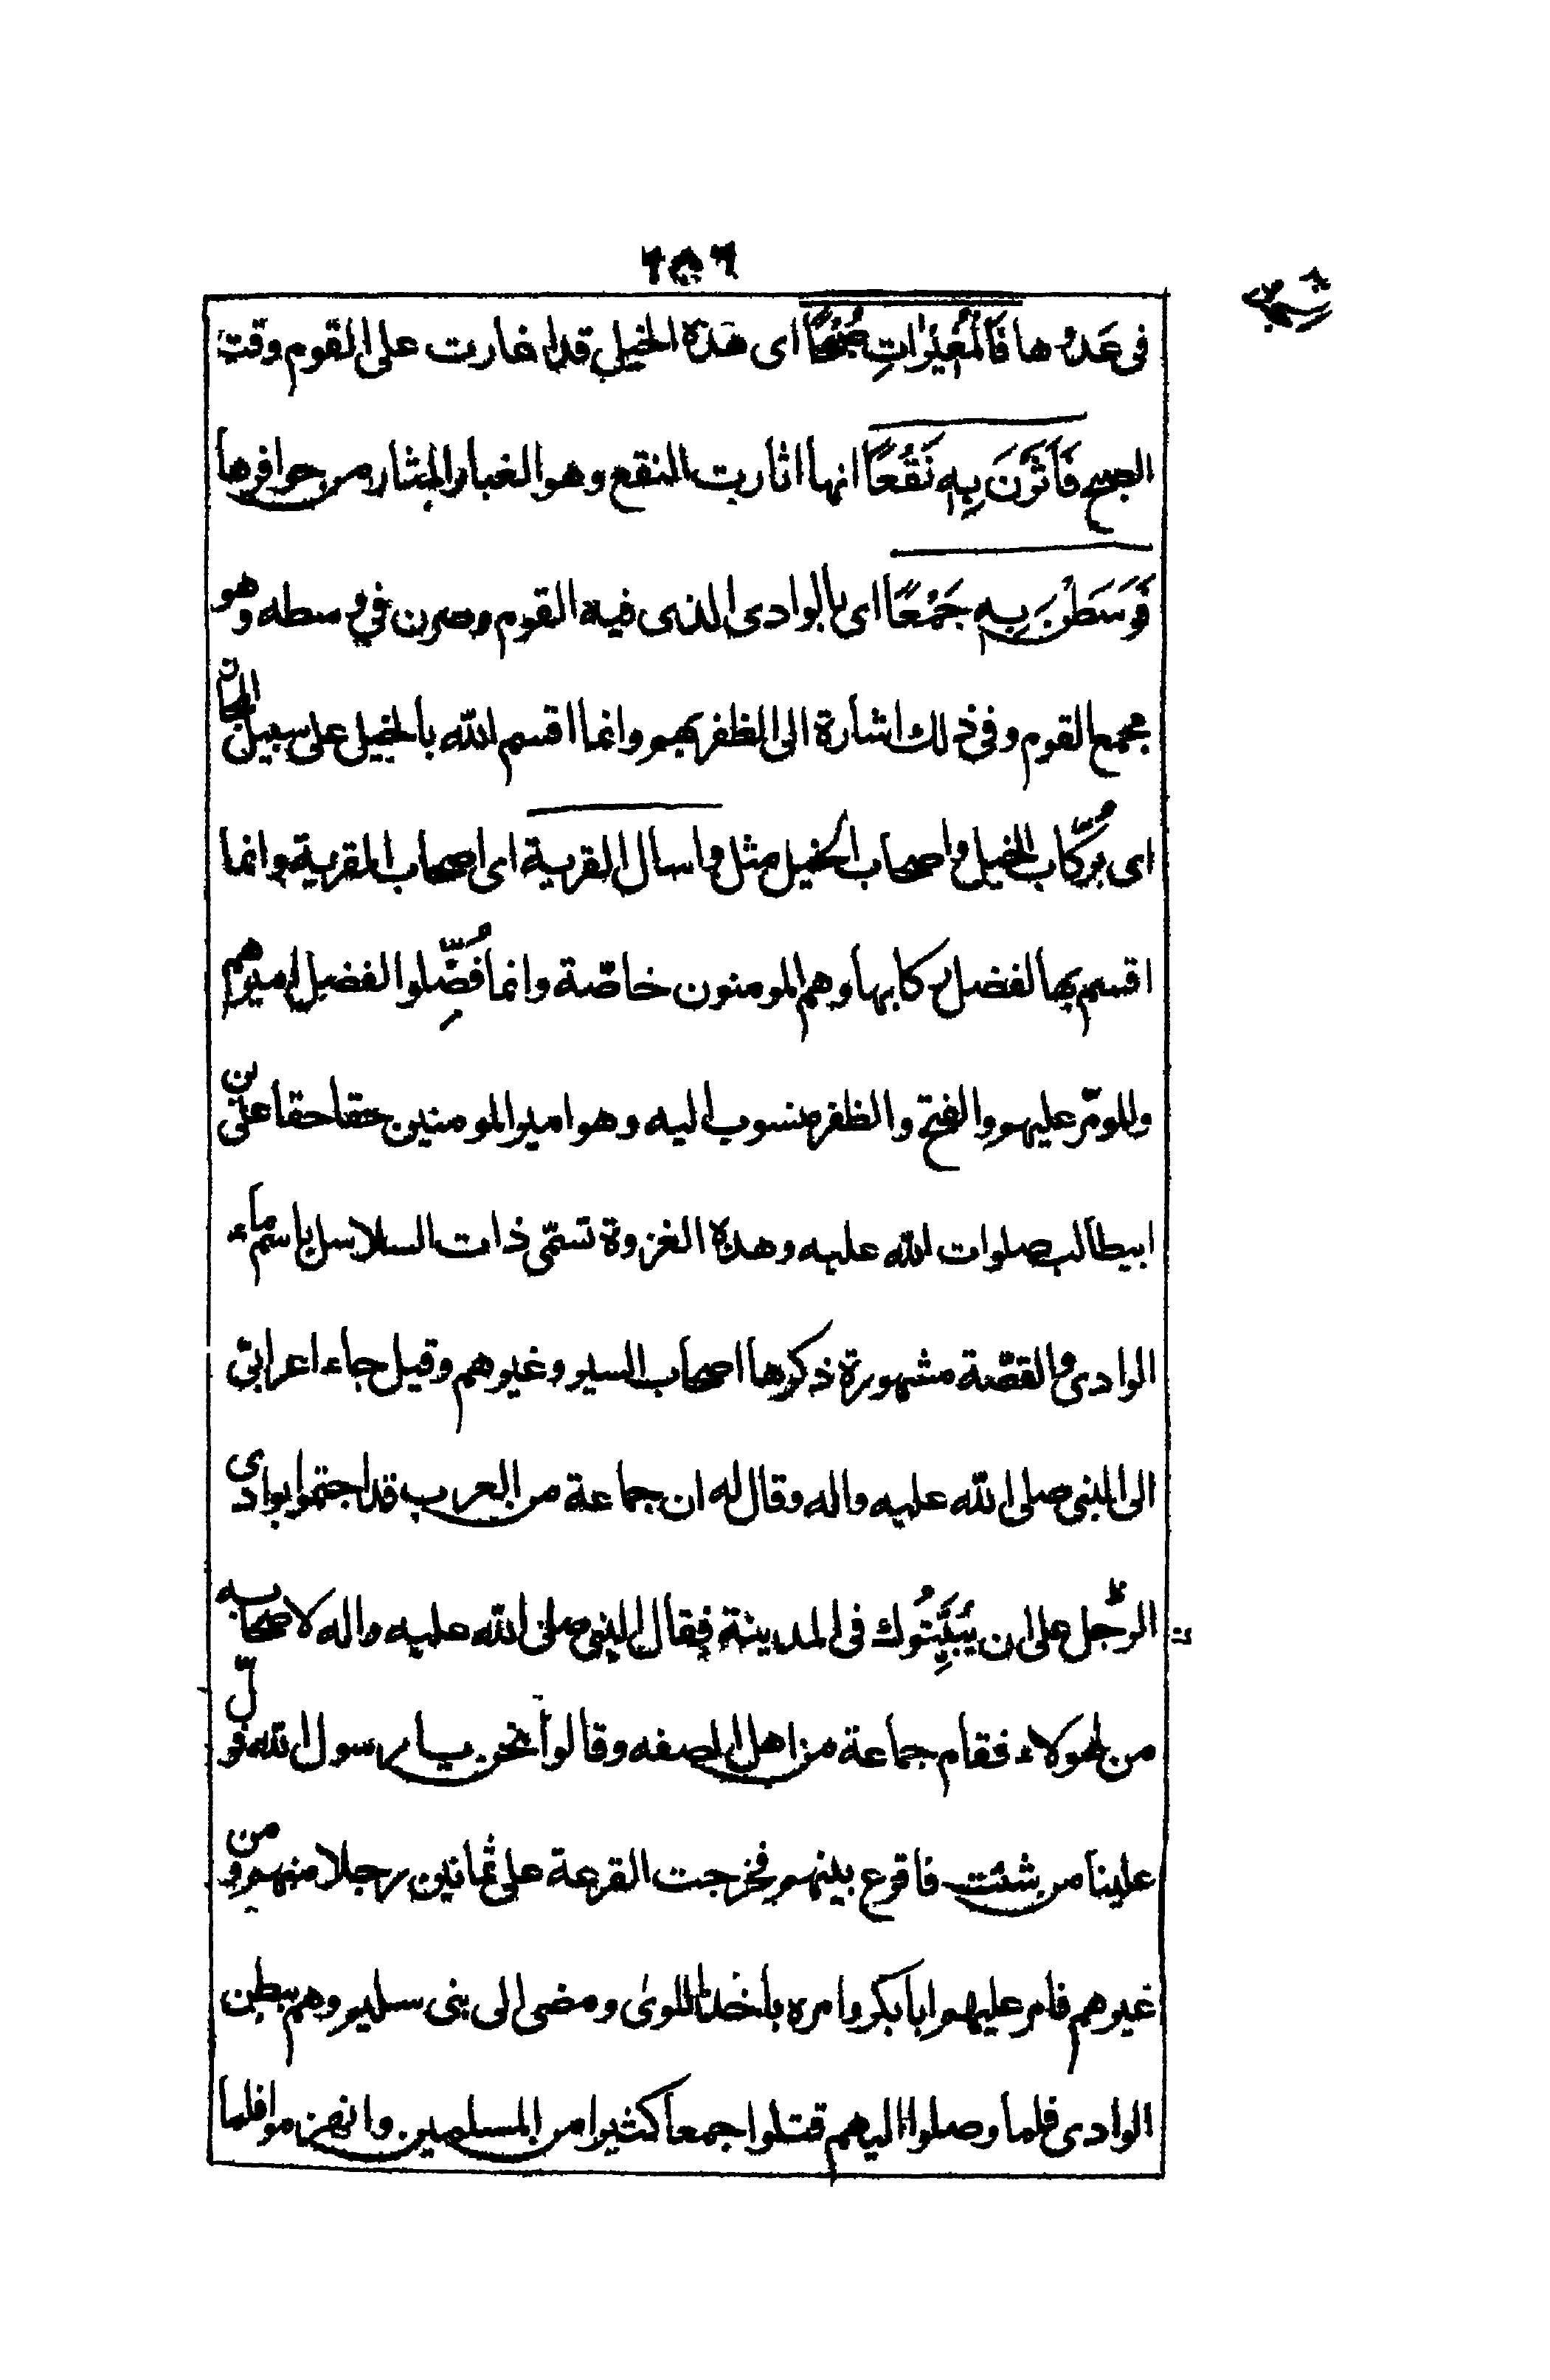 ٢٥٦
فى عَدْوها فَالْمُغِيْرَاتِ صُبْحًا اى هذه الخيل قد اغارت على القوم وقت
الصبح فَأَثَرْنَ بِهِ نَقْعًا انها اثارت النقع وهو الغبار المثار من حوافرها
فَوَسَطْنَ بِهِ جَمْعًا اى بالوادى الذى فيه القوم وصرن في وسطه وهو
مجمع القوم وفى ذلك اشارة الى الظفر بهم وانما اقسم الله بالخيل على سبيل المجاز
اى رُكّاب الخيل واصحاب الخيل مثل واسال القرية اى اصحاب القرية وانما
اقسم بها لفضل ركابها وهم المومنون خاصّة وانما فُضِّلوا لفضل اميرهم
وللومّر عليهم والفتح والظفر منسوب اليه وهو امير المومنين حقا حقا على بن
ابيطالب صلوات الله عليه وهذه الغزوة تسمّى ذات السلاسل باسم ماء
الوادى والقصّة مشهورة ذكرها اصحاب السير وغيرهم وقيل جاء اعرابىّ
الى النبى صلى الله عليه واله وقال له ان جماعة من العرب قد اجتمعوا بوادى
الرّجل على ان يُبَيِّتُوك فى المدينة فقال النبى صلى الله عليه واله لاصحابه
من لهولاء فقام جماعة من اهل الصفه وقالوا نحن يا رسول الله فولّ
علينا من شئت فاقرع بينهم فخرجت القرعة على ثمانين رجلا منهم ومن
غيرهم فامر عليهم ابا بكر وامره باخذ اللوى ومضى الى بنى سليم وهم ببطن
الوادى فلما وصلوا اليهم قتلوا جمعا كثيرا من المسلمين وانهزموا فلما